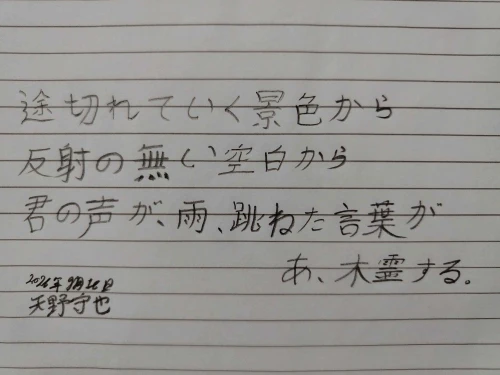 途切れていく景色から
反射の無い空白から
君の声が、雨、跳ねた言葉が
あ、木霊する。
2026年9月26日
天野守也